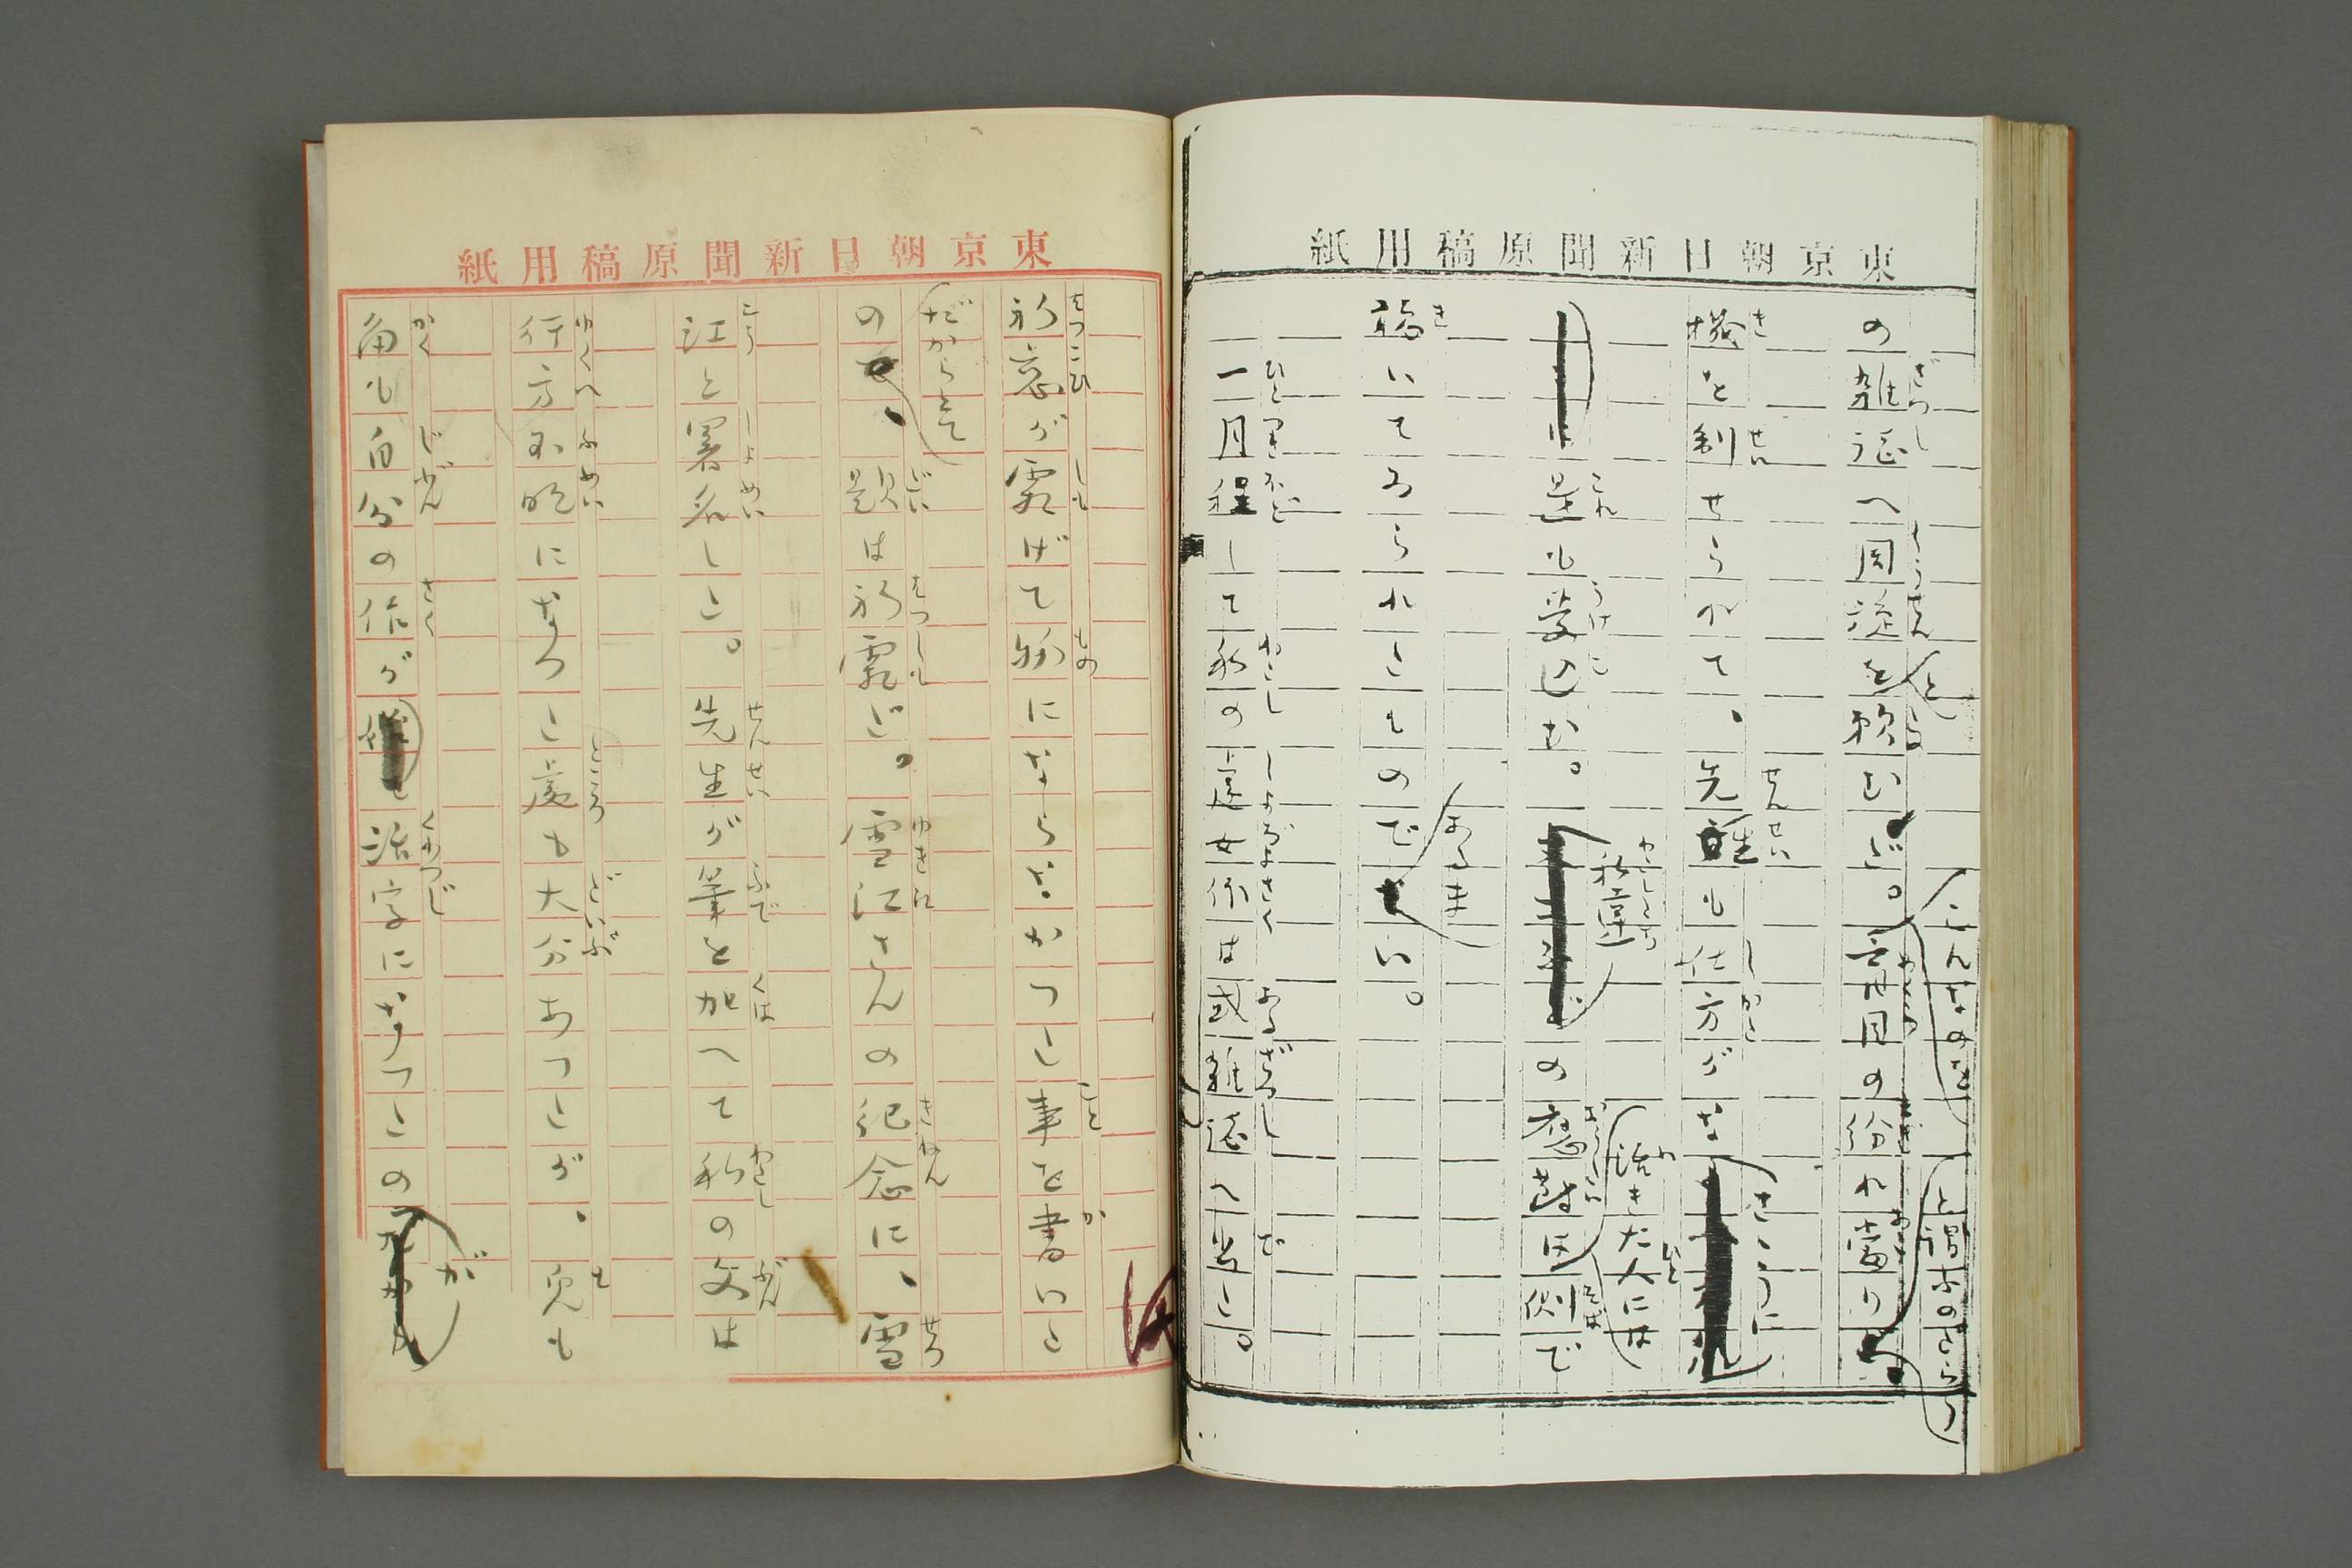 東京朝日新聞原稿用紙
こんなのを
と謂ふのださう
の雑誌へ周旋を頼むだ。盲目の紛れ當り
機を制せられて、先生も仕方がな
さゝうに
是も受込む。
私達
の應對を側で
活きた人には
聽いてゐられたもので
あるま
い。
一月程して私の處女作は或雑誌へ出た。
東京朝日新聞原稿用紙
初戀が霜げて物にならなかつた事を書いた
だからとて
の、題は初霜だ。雪江さんの記念に、雪
江と署名した。先生が筆を加へて私の文は
行方不明になつた處も大分あつたが、兎も
角も自分の作が活字になつたの
が